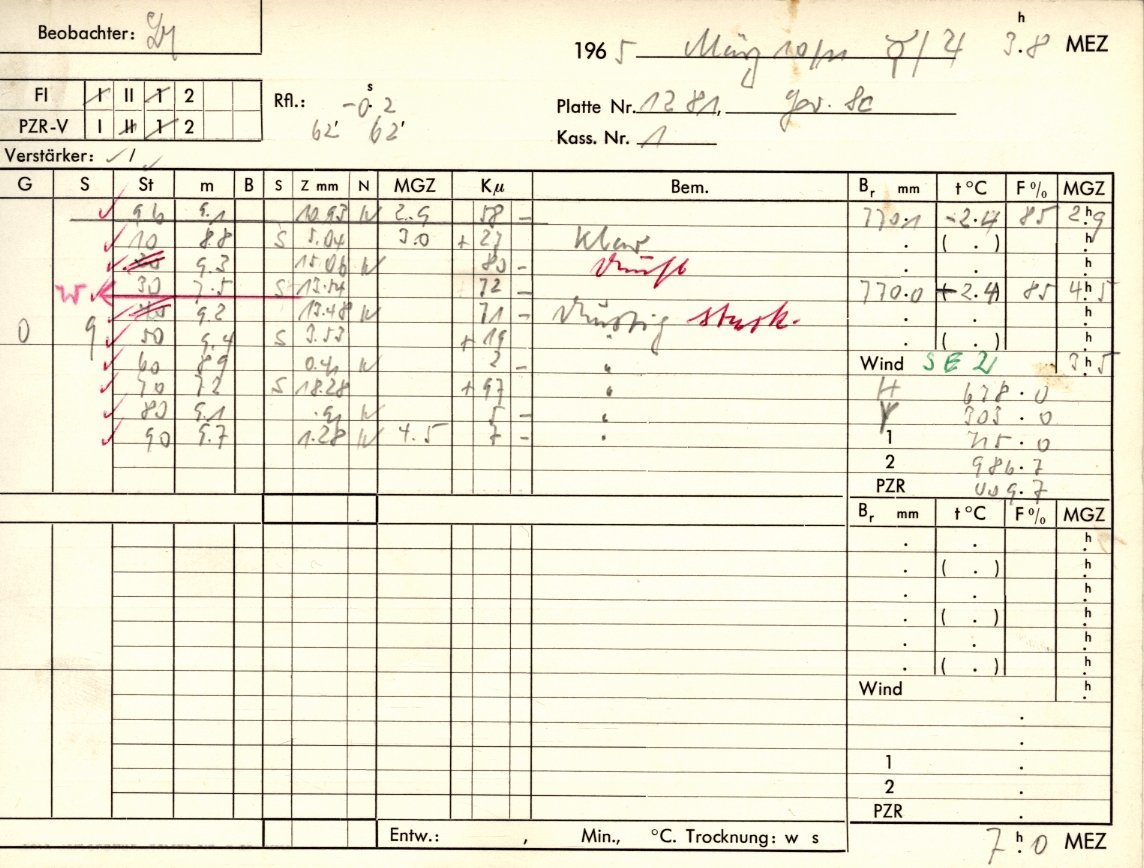 Beobachter:
1965 März 10/11 ♂/♃ 3.8 h MEZ
FI I II 1 2
PZR-V I II 1 2
Rfl.: -0.2 s
62' 62'
Platte Nr. 1281, gev. Sc
Kass. Nr. 1
Verstärker: ✓ /
G S St m B S Z mm N MGZ Kμ Bem.
Br mm t °C F % MGZ
9.1 10.93 W 2.9 58 -
770.1 -2.4 85 2.9 h
10 8.8 S 5.04 3.0 + 27 klar
. ( . ) h
9.3 15.06 W 80 -
. . h
W 30 7.5 S 13.54 72 -
770.0 ( 2.4) 85 4.5 h
9.2 13.48 W 71 - stark.
. . h
0 9 50 9.4 S 3.53 + 19
. ( . ) h
60 8.9 0.41 W 2 - "
Wind SE 2 3.5 h
70 7.2 S 18.28 + 97 "
H 678.0
80 9.1 W 5 - "
303.0
90 9.7 1.28 W 4.5 7 - "
1
2 986.7
PZR
Br mm t °C F % MGZ
. . h
. ( . ) h
. . h
. ( . ) h
. . h
. ( . ) h
Wind h
.
.
1 .
2 .
PZR .
Entw.: , Min., °C. Trocknung: w s
7.0 h MEZ